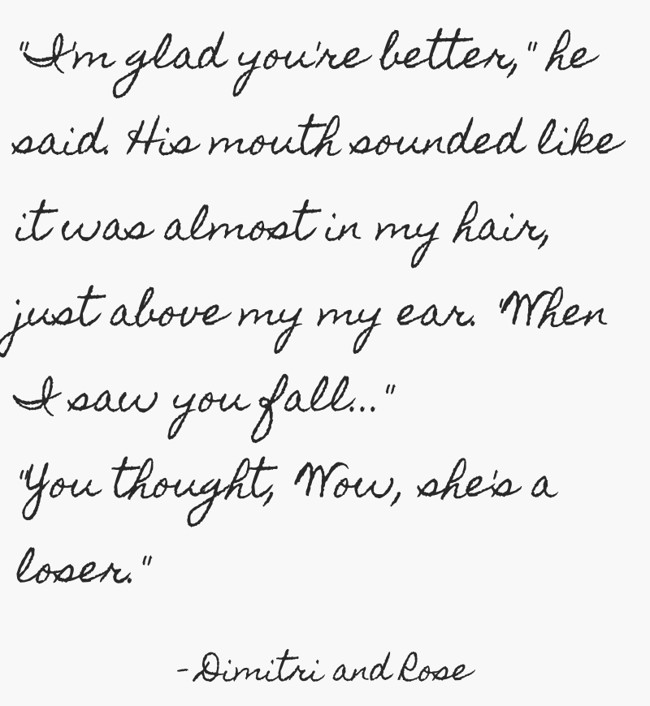 "I'm glad you're better," he
said. His mouth sounded like
it was almost in my hair,
just above my my ear. "When
I saw you fall..."
"You thought, Wow, she's a
loser."
-Dimitri and Rose